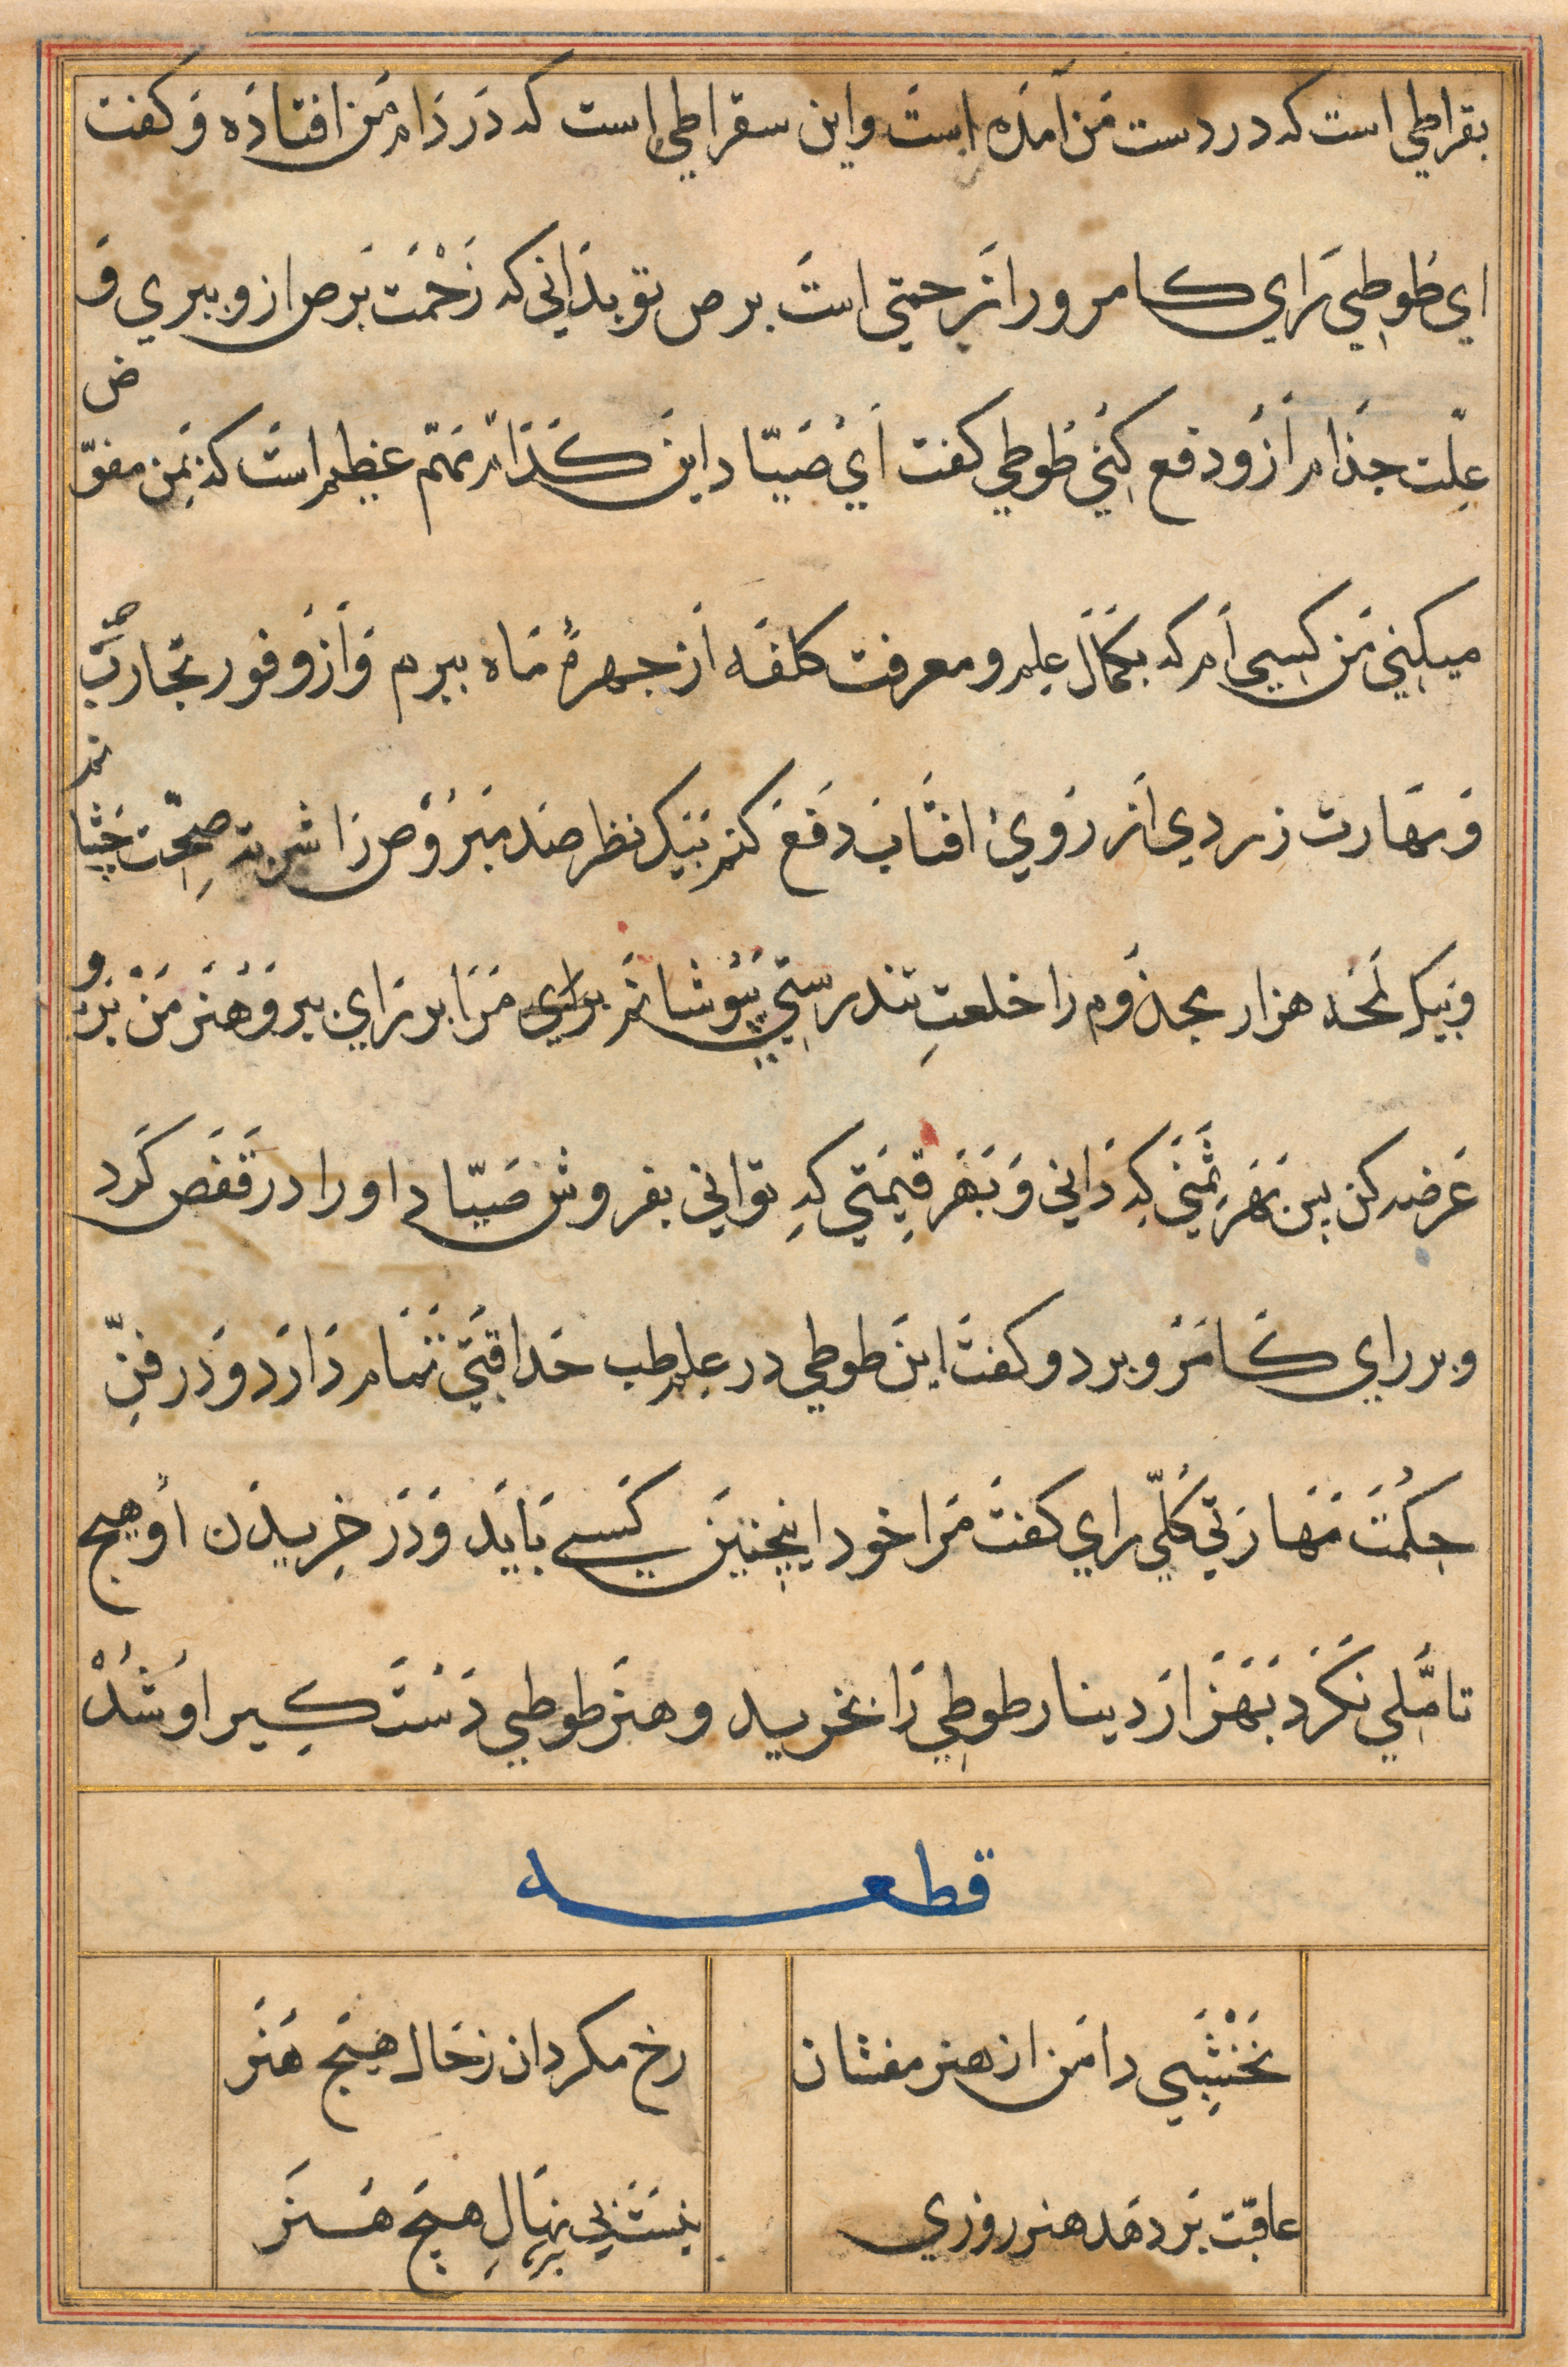 بقراطی است که در دست من آمده است و این سقراطی است که در دام من افتاده و کفت
ای طوطی رای کامرو را زحمتی است برص تو بدانی که زحمت برص ازو ببری و
علّت جذام ازو دفع کنی طوطی کفت ای صیّاد این کدام مهمّ عظیم است که بمن مفوّض
میکنی من کسی ام که بکمال علم و معرفت کلفه از چهرهٔ ماه ببرم و از وفور تجارب
و مهارت زردی از روی افتاب دفع کنم بیک نظر صد مبروص را شربت صحّت چشانم
و بیک لحد هزار مجذوم را خلعتِ تندرستی بپوشانم برای مرا بر رای ببر و هنر من برو
عرضه کن پس بهر ثمنی که دانی و بهر قیمتی که توانی بفروش صیّاد او را در قفص کرد
و بر رای کامرو برد و کفت این طوطی در علم طب حداقتی تمام دارد و در فنّ
حکمت مهارتی کلّی رای کفت مرا خود اینچنین کسی باید و در خریدن او هیچ
تامّلی نکرد بهزار دینار طوطی را بخرید و هنر طوطی دست کیر او شد
قطعه
نخشبی دامن از هنر مفشان رخ مکردان ز حال هیچ هنر
عاقبت بر دهد هنر روزی نیست بی بر نهالِ هیچ هنر